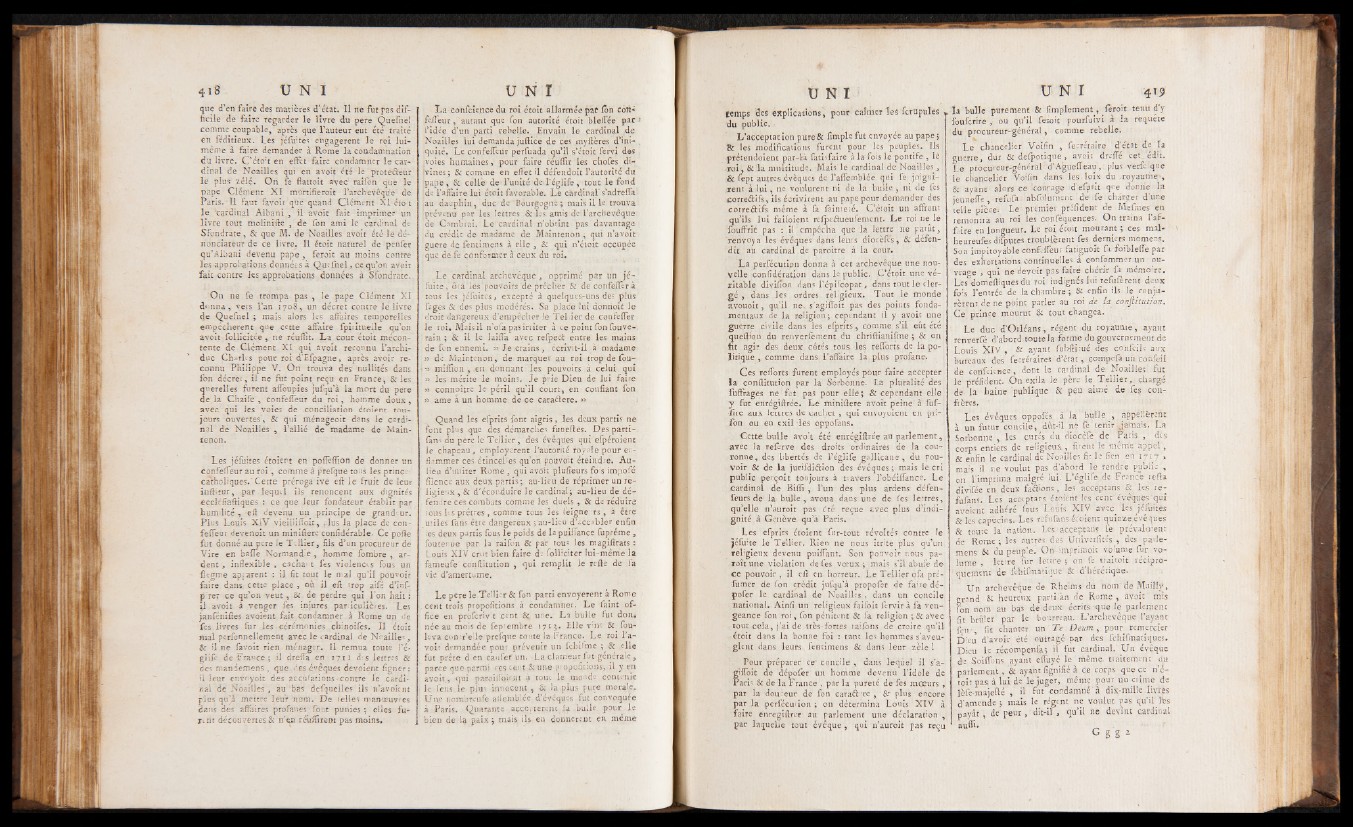 418 U N I
que d'en faire des matières d'état. Il ne fut pas dif-
ficile de faire regarder le livre du pere Quesnel
comme coupable, après que l'auteur eut été traité
en séditieux. Les jésuites engagerent le roi lui-
même à faire demander à Rome la condamnation
du livre. C'étoit en effet faire condamner le car-
dinal de Noailles qui en avoit été le protecteur
le plus zélé. On se flattoit avec raison que le
pape Clément XI mortifieroit l'archevêque de
Paris. Il faut savoir que quand Clément XI étoit
le cardinal Albani, il avoit fait imprimer un
livre tout moliniste, de son ami le cardinal de
Sfondrate, & que M. de Noailles avoit été le dé-
nonciateur de ce livre. Il étoit naturel de penser
qu'Albani devenu pape, feroit au moins contre
les approbations données à Quesnel, ce qu'on avoit
fait contre les approbations données à Sfondrate.
On ne se trompa pas, le pape Clément XI
donna, vers l'an 1708, un décret contre le livre
de Quesnel; mais alors les affaires temporelles
empêcherent que cette affaire spirituelle qu'on
avoit sollicitée, ne réussît. La cour étoit mécon-
tente de Clément XI qui avoit reconnu l'archi-
duc Charles pour roi d'Espagne, après avoir re-
connu Philippe V. On trouva des nullités dans
son décret, il ne fut point reçu en France, & les
querelles furent assoupies jusqu'à la mort du pere
de la Chaise, confesseur du roi, homme doux,
avec qui les voies de conciliation étoient tou-
jours ouvertes, & qui ménageoit dans le cardi-
nal de Noailles, l'allié de madame de Main-
tenon.
Les jésuites étoient en possession de donner un
confesseur au roi, comme à presque tous les princes
catholiques. Cette prérogative est le fruit de leur
institut, par lequel ils renoncent aux dignités
ecclésiastiques : ce que leur fondateur établit par
humilité, est devenu un principe de grandeur.
Plus Louis XIV vieillissoit, plus la place de con-
fesseur devenoit un ministere considérable. Ce poste
fut donné au pere le Tellier, fils d'un procureur de
Vire en basse Normandie, homme sombre, ar-
dent, inflexible, cachant ses violences sous un
flegme apparent : il fit tout le mal qu'il pouvoit
faire dans cette place, où il est trop aisé d'ins-
pirer ce qu'on veut, & de perdre qui l'on hait :
il avoit à venger ses injures particulières. Les
jansénistes avoient fait condamner à Rome un de
ses livres sur les cérémonies chinoises. Il étoit
mal personnellement avec le cardinal de Noailles,
& il ne savoit rien ménager. Il remua toute l'é-
glise de France; il dressa en 1711 des lettres &
des mandemens, que des évêques devoient signer;
il leur envoyoit des accusations contre le cardi-
nal de Noailles, au bas desquelles ils n'avoient
plus qu'à mettre leur nom. De telles manœuvres
dans des affaires profanes sont punies; elles fu-
rent découvertes & n'en réussirent pas moins.
U N I
La conscience du roi étoit allarmée par son con-
fesseur, autant que son autorité étoit blessée par
l'idée d'un parti rebelle. Envain le cardinal de
Noailles lui demanda justice de ces mystères d'ini-
quité. Le confesseur persuada qu'il s'étoit servi des
voies humaines, pour faire réussir les choses di-
vines; & comme en effet il défendoit l'autorité du
pape, & celle de l'unité de l'église, tout le fond
de l'affaire lui étoit favorable. Le cardinal s'adressa
au dauphin, duc de Bourgogne; mais il le trouva
prévenu par les lettres & les amis de l'archevêque
de Cambrai. Le cardinal n'obtint pas davantage
du crédit de madame de Maintenon, qui n'avoit
guere de sentimens à elle, & qui n'étoit occupée
que de se conformer à ceux du roi.
Le cardinal archevêque, opprimé par un jé-
suite, ôta les pouvoirs de prêcher & de confesser à
tous les jésuites, excepté à quelques-uns des plus
sages & des plus modérés. Sa place lui donnoit le
droit dangereux d'empêcher le Tellier de confesser
le roi. Mais il n'osa pas irriter à ce point son souve-
rain; & il le laissa avec respect entre les mains
de son ennemi. « Je crains, écrivit-il à madame
» de Maintenon, de marquer au roi trop de sou-
» mission, en donnant les pouvoirs à celui qui
» les mérite le moins. Je prie Dieu de lui faire
» connoître le péril qu'il court, en confiant son
» ame à un homme de ce caractere. »
Quand les esprits sont aigris, les deux partis ne
font plus que des démarches funestes. Des parti-
sans du pere le Tellier, des évêques qui espéroient
le chapeau, employerent l'autorité royale pour en-
flammer ces étincelles qu'on pouvoit éteindre. Au-
lieu d'imiter Rome, qui avoit plusieurs fois imposé
silence aux deux partis; au-lieu de réprimer un re-
ligieux, & d'éconduire le cardinal; au-lieu de dé-
fendre ces combats comme les duels, & de réduire
tous les prêtres, comme tous les seigneurs, à être
utiles sans être dangereux; au-lieu d'accabler enfin
les deux partis sous le poids de la puissance suprême,
soutenue par la raison & par tous les magistrats :
Louis XIV crut bien faire de solliciter lui-même la
fameuse constitution, qui remplit le reste de sa
vie d'amertume.
Le pere le Tellier & son parti envoyerent à Rome
cent trois propositions à condamner. Le saint of-
fice en proscrivit cent & une. La bulle fut don-
née au mois de septembre 1713. Elle vint & sou-
leva contr'elle presque toute la France. Le roi l'a-
voit demandée pour prévenir un schisme; & elle
fut prête d'en causer un. La clameur fut générale,
parce que parmi ces cent & une propositions, il y en
avoit, qui paroissoient à tout le monde contenir
le sens le plus innocent, & la plus pure morale.
Une nombreuse assemblée d'évêques fut convoquée
à Paris. Quarante accepterent la bulle pour le
bien de la paix; mais ils en donnerent en même
U N I
temps des explications, pour calmer les scrupules
du public.
L'acceptation pure & simple fut envoyée au pape;
& les modifications furent pour les peuples. Ils
prétendoient par-là satisfaire à la fois le pontife, le
roi, & la multitude. Mais le cardinal de Noailles,
& sept autres évêques de l'assemblée qui se joigni-
rent à lui, ne voulurent ni de la bulle, ni de ses
correctifs, ils écrivirent au pape pour demander des
correctifs même à sa sainteté. C'étoit un affront
qu'ils lui faisoient respectueusement. Le roi ne le
souffrit pas : il empêcha que la lettre ne parût,
renvoya les évêques dans leurs diocèses, & défen-
dit au cardinal de paroître à la cour.
La persécution donna à cet archevêque une nou-
velle considération dans le public. C'étoit une vé-
ritable division dans l'épiscopat, dans tout le cler-
gé, dans les ordres religieux. Tout le monde
avouoit, qu'il ne s'agissoit pas des points fonda-
mentaux de la religion; cependant il y avoit une
guerre civile dans les esprits, comme s'il eût été
question du renversement du christianisme; & on
fit agir des deux côtés tous les ressorts de la po-
litique, comme dans l'affaire la plus profane.
Ces ressorts furent employés pour faire accepter
la constitution par la Sorbonne. La pluralité des
suffrages ne fut pas pour elle; & cependant elle
y fut enrégistrée. Le ministere avoit peine à suf-
fire aux lettres de cachet, qui envoyoient en pri-
son ou en exil les opposans.
Cette bulle avoit été enrégistrée au parlement,
avec la réserve des droits ordinaires de la cou-
ronne, des libertés de l'église gallicane, du pou-
voir & de la jurisdiction des évêques; mais le cri
public perçoit toujours à travers l'obéissance. Le
cardinal de Bissi, l'un des plus ardens défen-
seurs de la bulle, avoua dans une de ses lettres,
qu'elle n'auroit pas été reçue avec plus d'indi-
gnité à Genève qu'à Paris.
Les esprits étoient sur-tout révoltés contre le
jésuite le Tellier. Rien ne nous irrite plus qu'un
religieux devenu puissant. Son pouvoir nous pa-
roît une violation de ses vœux; mais s'il abuse de
ce pouvoir, il est en horreur. Le Tellier osa pré-
sumer de son crédit jusqu'à proposer de faire dé-
poser le cardinal de Noailles, dans un concile
national. Ainsi un religieux faisoit servir à sa ven-
geance son roi, son pénitent & sa religion; & avec
tout cela, j'ai de très-fortes raisons de croire qu'il
étoit dans la bonne foi : tant les hommes s'aveu-
glent dans leurs sentimens & dans leur zèle!
Pour préparer ce concile, dans lequel il s'a-
gissoit de déposer un homme devenu l'idole de
Paris & de la France, par la pureté de ses mœurs,
par la douceur de son caractere, & plus encore
par la persécution; on détermina Louis XIV à
faire enregistrer au parlement une déclaration,
par laquelle tout évêque, qui n'auroit pas reçu
U N I 419
la bulle purement & simplement, seroit tenu d'y
souscrire, ou qu'il seroit poursuivi à la requête
du procureur-général, comme rebelle.
Le chancelier Voisin, secrétaire d'état de la
guerre, dur & despotique, avoit dressé cet édit.
Le procureur-général d'Aguesseau, plus versé que
le chancelier Voisin dans les loix du royaume,
& ayant alors ce courage d'esprit que donne la
jeunesse, refusa absolument de se charger d'une
telle pièce. Le premier président de Mesmes en
remontra au roi les conséquences. On traina l'af-
faire en longueur. Le roi étoit mourant; ces mal-
heureuses disputes troublèrent ses derniers momens.
Son impitoyable confesseur fatiguoit sa foiblesse par
des exhortations continuelles à consommer un ou-
vrage, qui ne devoit pas faire chérir sa mémoire.
Les domestiques du roi indignés lui refusèrent deux
fois l'entrée de la chambre; & enfin ils le conju-
rèrent de ne point parler au roi de la constitution.
Ce prince mourut & tout changea.
Le duc d'Orléans, régent du royaume, ayant
renversé d'abord toute la forme du gouvernement de
Louis XIV, & ayant substitué des conseils aux
bureaux des secrétaires d'état, composa un conseil
de conscience, dont le cardinal de Noailles fut
le président. On exila le père le Tellier, chargé
de la haine publique & peu aimé de ses con-
frères.
Les évêques opposés à la bulle, appellèrent
à un futur concile, dût-il ne se tenir jamais. La
Sorbonne, les curés du diocèse de Paris, des
corps entiers de religieux, firent le même appel,
& enfin le cardinal de Noailles fit le sien en 1717,
mais il ne voulut pas d'abord le rendre public,
on l'imprima malgré lui. L'église de France resta
divisée en deux factions, les acceptans & les re-
fusans. Les acceptans étoient les cent évêques qui
avoient adhéré sous Louis XIV avec les jésuites
& les capucins. Les refusans étoient quinze évêques
& toute la nation. Les acceptans se prévaloient
de Rome; les autres des Universités, des parle-
mens & du peuple. On imprimoit volume sur vo-
lume, lettre sur lettre; on se traitoit récipro-
quement de schismatique & d'hérétique.
Un archevêque de Rheims du nom de Mailly,
grand & heureux partisan de Rome, avoit mis
son nom au bas de deux écrits que le parlement
fit brûler par le bourreau. L'archevêque l'ayant
su, fit chanter un Te Deum, pour remercier
Dieu d'avoir été outragé par des schismatiques.
Dieu le récompensa; il fut cardinal. Un évêque
de Soissons ayant essuyé le même traitement du
parlement, & ayant signifié à ce corps que ce n'é-
toit pas à lui de le juger, même pour un crime de
lèse-majesté, il fut condamné à dix-mille livres
d'amende; mais le régent ne voulut pas qu'il les
payât, de peur, dit-il, qu'il ne devînt cardinal
aussi.
G g g 2